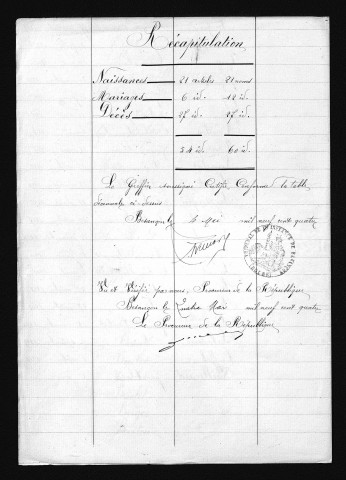 Récapitulation
Naissances 21 articles 21 noms
Mariages 6 id. 12 id.
Décès 27 id. 27 id.
54 id. 60 id.
Le Greffier soussigné Certifie Conforme la table
décennale
Besançon le Mai mil neuf cent quatre
Vu et Vérifié par nous, Procureur de la République
Besançon le Quatre Mai mil neuf cent quatre
Le Procureur de la République